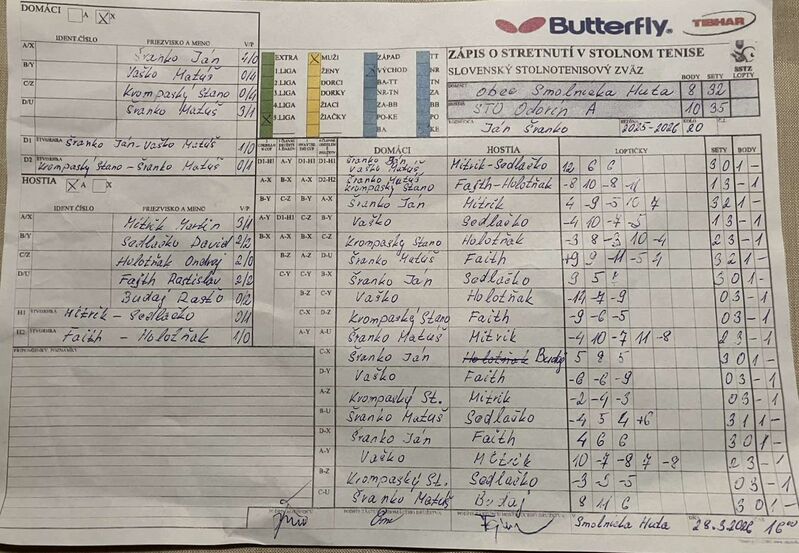 DOMÁCI A X X
Butterfly TIBHAR
IDENT.ČÍSLO PRIEZVISKO A MENO V/P
ZÁPIS O STRETNUTÍ V STOLNOM TENISE
SLOVENSKÝ STOLNOTENISOVÝ ZVÄZ SSTZ
A/X Šranko Ján 4/0
B/Y Vaško Matúš 0/4
C/Z Krompaský Stano 0/4
D/U Šranko Matúš 3/1
EXTRA X MUŽI ZÁPAD TT
1.LIGA ŽENY VÝCHOD NR
2.LIGA DORCI BA-TT TN
3.LIGA DORKY NR-TN ZA
4.LIGA ŽIACI ZA-BB BB
X 5.LIGA ŽIAČKY PO-KE PO
BA KE
BODY SETY LOPTY
Obec Smolnícka Huta 8 32
STO Odorín A 10 35
Ján Šranko 2025-2026 20
D1 ŠTVORHRA Šranko Ján-Vaško Matúš 1/0
D2 ŠTVORHRA Krompaský Stano-Šranko Matúš 0/1
HOSTIA X A X
IDENT.ČÍSLO PRIEZVISKO A MENO V/P
A/X Mitrík Martin 3/1
B/Y Sedlačko David 2/2
C/Z Holotňák Ondrej 2/0
D/U Faith Rastislav 2/2
Budaj Rasťo 0/2
H1 ŠTVORHRA Mitrík - Sedlačko 0/1
H2 ŠTVORHRA Faith - Holotňák 1/0
PRIPOMIENKY, POZNÁMKY
DOMÁCI HOSTIA LOPTIČKY SETY BODY
D1-H1 A-Y D1-H1 Šranko Ján Vaško Matúš Mitrík-Sedlačko 12 6 6 3 0 1 -
A-X B-X A-X D2-H2 Šranko Matúš Krompaský Stano Faith-Holotňák -8 10 -8 -11 1 3 - 1
B-Y C-Z B-Y A-X Šranko Ján Mitrík 4 -9 -5 10 7 3 2 1 -
A-Y D1-H1 C-Z B-Y Vaško Sedlačko -4 10 -7 -5 1 3 - 1
B-X A-X C-Z Krompaský Stano Holotňák -3 8 -3 10 -4 2 3 - 1
D-U Šranko Matúš Faith 9 -11 -5 4 3 2 1 -
Šranko Ján Sedlačko 9 5 3 0 1 -
Vaško Holotňák -14 -7 -9 0 3 - 1
D-Z Krompaský Stano Faith -9 -6 -5 0 3 - 1
A-U Šranko Matúš Mitrík -4 10 -7 11 -8 2 3 - 1
C-X Šranko Ján Holotňák Budaj 5 9 5 3 0 1 -
D-Y Vaško Faith -6 -6 -9 0 3 - 1
A-Z Krompaský St. Mitrík -2 -4 -3 0 3 - 1
B-U Šranko Matúš Sedlačko -4 5 4 +6 3 1 1 -
D-X Šranko Ján Faith 4 6 6 3 0 1 -
A-Y Vaško Mitrík 10 -7 -8 7 -8 2 3 - 1
B-Z Krompaský St. Sedlačko -3 -3 -5 0 3 - 1
C-U Šranko Matúš Budaj 8 11 6 3 0 1 -
Smolnícka Huta 28.3.2026 16 00